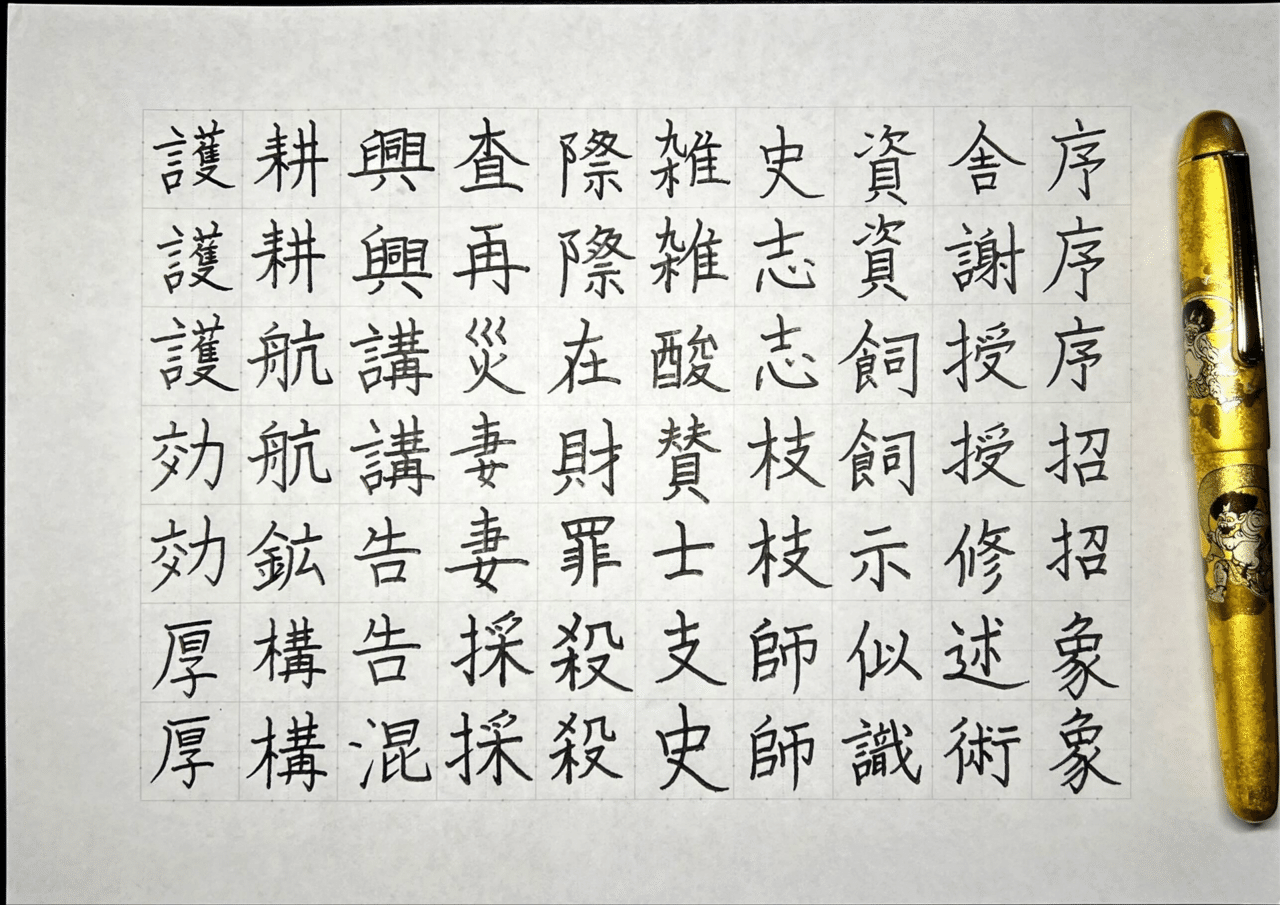 護護護効効厚厚
耕耕航航鉱構構
興興講講告告混
査再災妻妻採採
際際在財罪殺殺
雑雑酸賛士支史
史志志枝枝師師
資資飼飼示似識
舎謝授授修述術
序序序招招象象